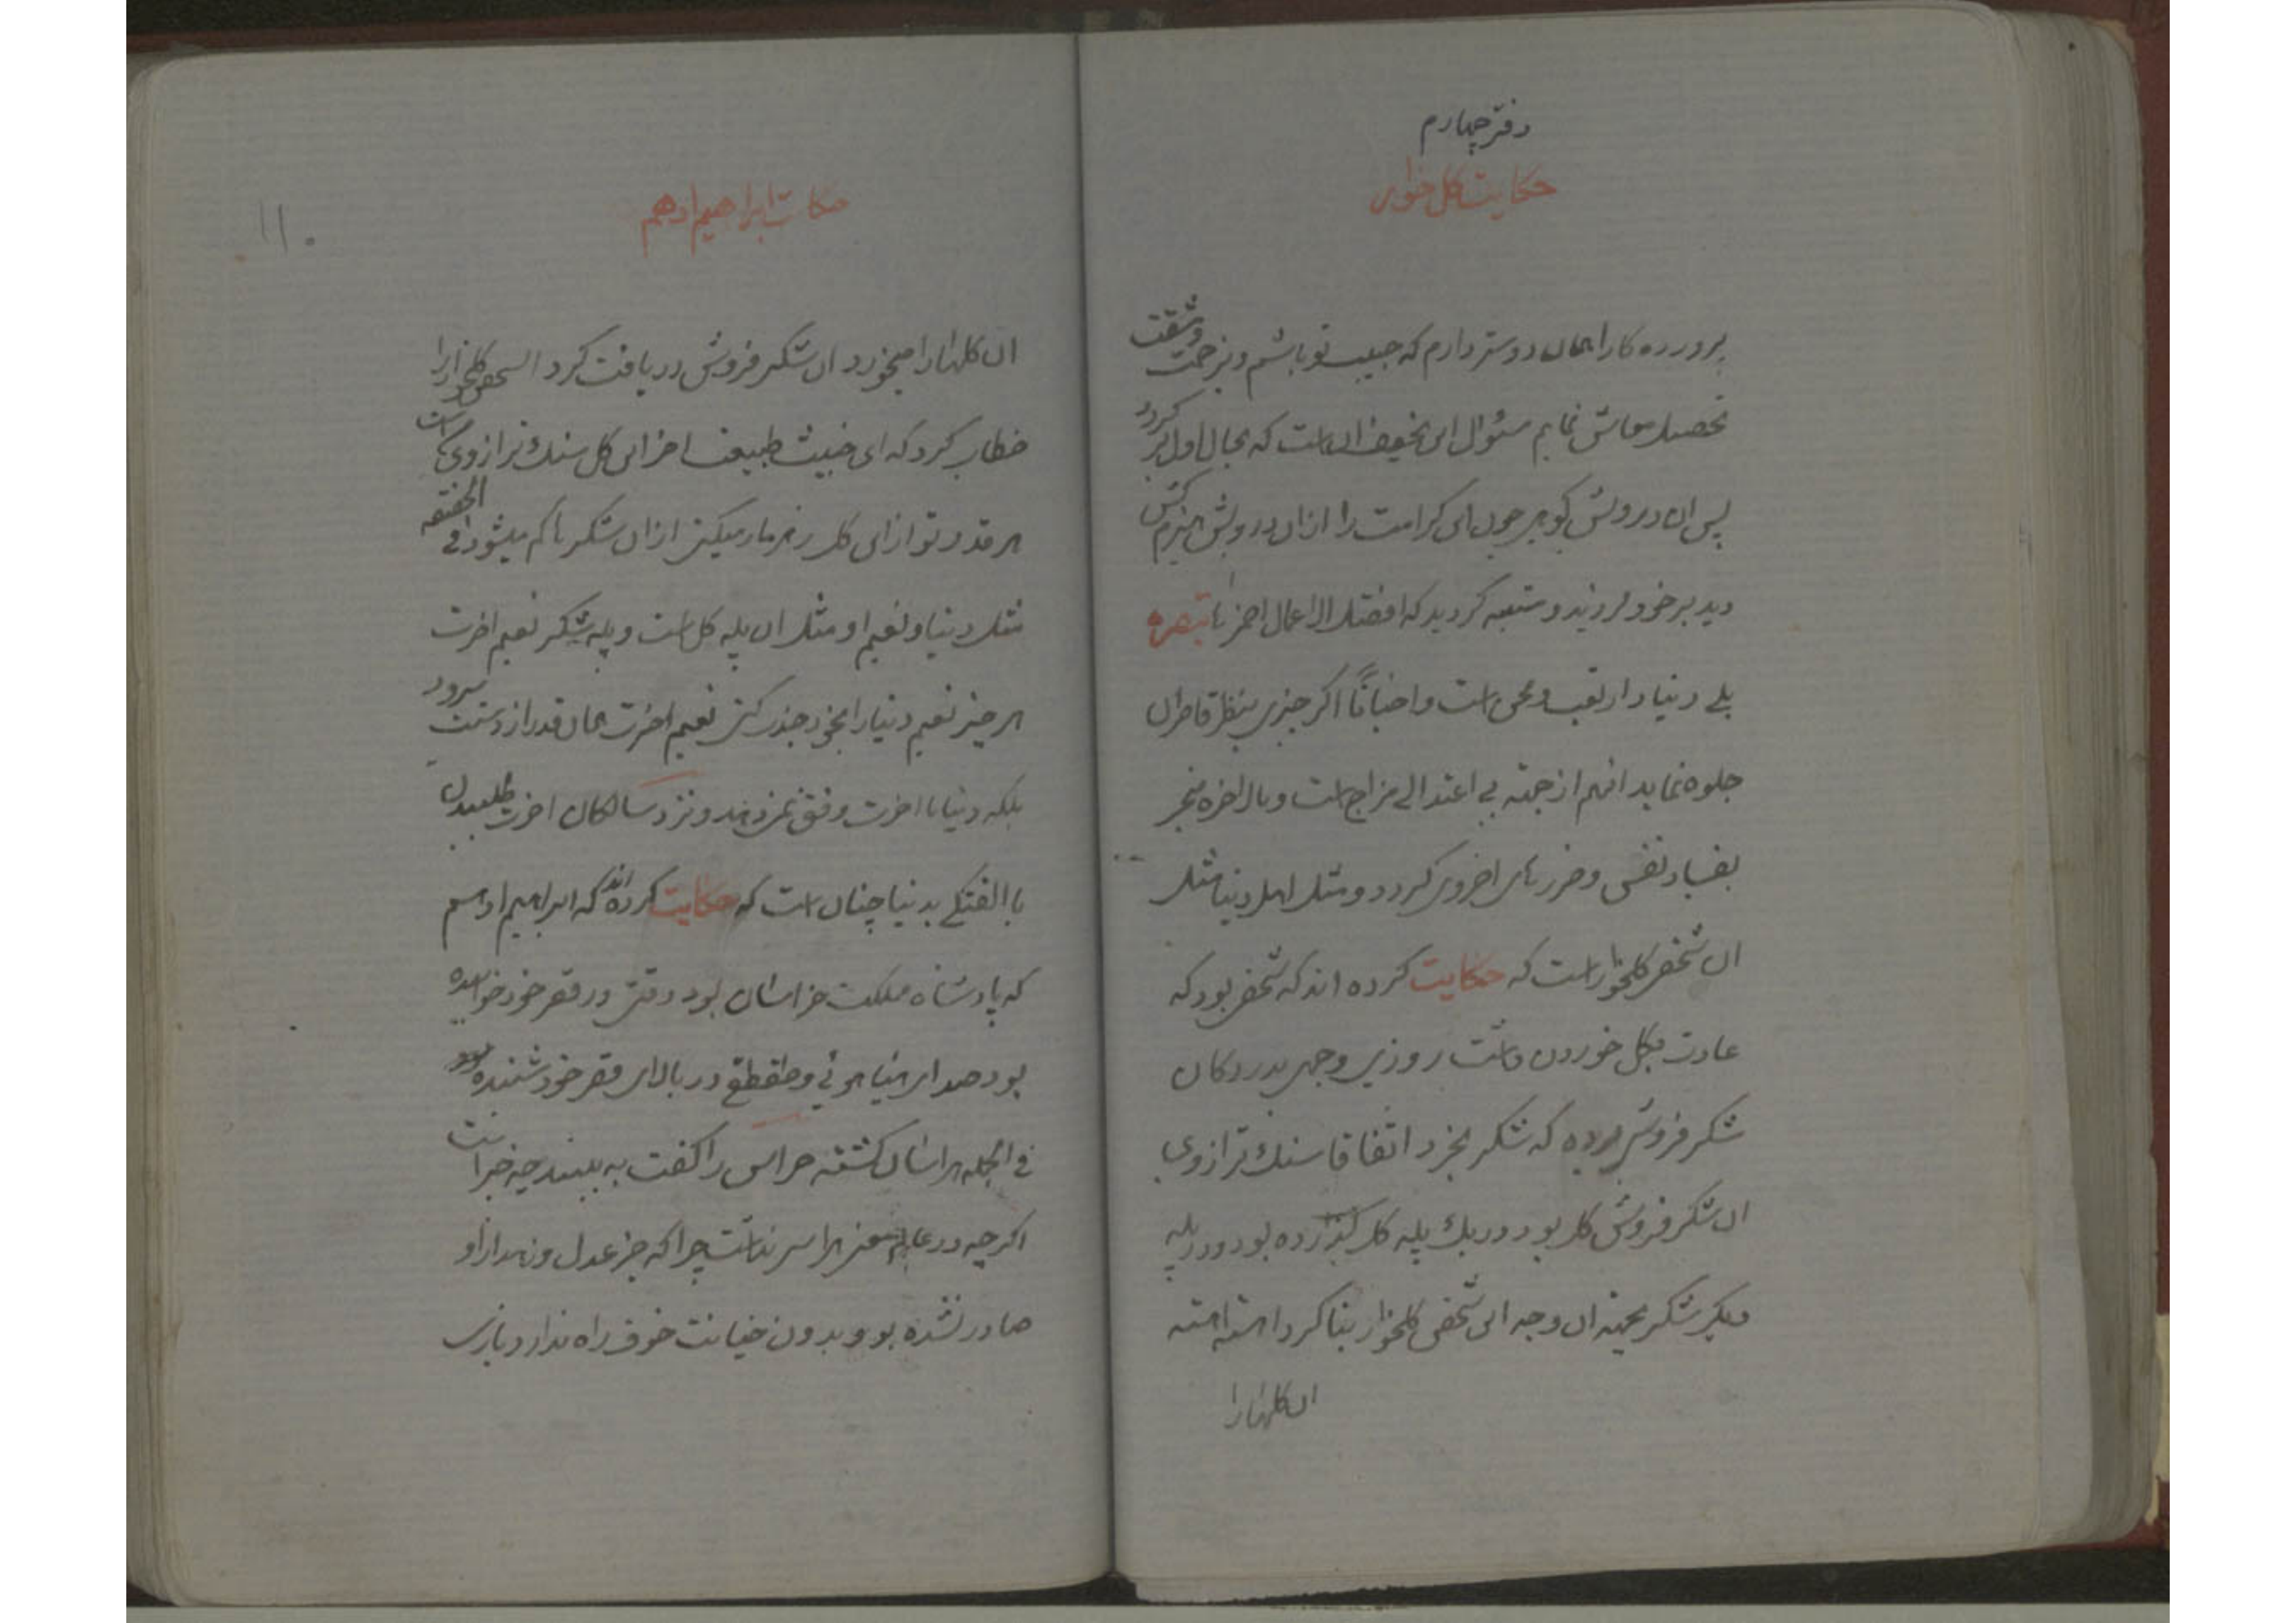 دفتر چهارم
حکایت کل خوار
پرورده کارا همان دوستر دارم که حبیب تو باشم و بزحمت ومشقت
تحصیل معاش نمایم سئوال این نحیف ان است که بحال اول بر کردد
پس ان درویش کوهر چون این کرامت را ازان درویش هیزم کش
دید برخود لرزید و متنبه کردید که افضل الاعمال احمزها تبصره
بلے دنیا دار تعب و محن است و احیاناً اکر چیزی بنظر قاصران
جلوه نماید انهم از جهته بی اعتدالی مزاج است و بالاخره منجر
بفساد نفس و ضررهای اخروی کردد و مثل اهل دنیا مثل
ان شخص کلخوار است که حکایت کرده اند که شخصی بود که
عادت بکل خوردن داشت روزی وجهی بدر دکان
شکر فروش برده که شکر بخرد اتفاقا سنك ترازوی
ان شکر فروش کل بود در یك پله کل کذارده بود و در پله
دیکر شکر بجهته ان وجه این شخص کلخوار بنا کرد اهسته اهسته
ان کلهارا
۱۱۰
حکایت ابراهیم ادهم
ان کلهارا میخورد ان شکر فروش دریافت کرد انشخص کلخوار را
خطاب کرد که ای خبیث طبیعت اخر این کل سنك ترازوی است
هر قدر تو از این کل زهرمار میکنی ازان شکرها کم میشود فی الحقیقه
مثل دنیا و نعیم او مثل ان پله کل است و پله شکر نعیم اخرت
هر چیز نعیم دنیا را بخود جذب کنی نعیم اخرت همان قدر از دستت میرود
بلکه دنیا با اخرت وفق نمیدهد و نزد سالکان اخرت طلبیدن
با الفتکی بدنیا چنان است که حکایت کرده اند که ابراهیم ادهم
که پادشاه مملکت خراسان بود وقتی در قصر خود خوابیده
بود صدای هیاهوئی و طقطق در بالای قصر خود شنیده
فی الجمله هراسان کشته حراس را کفت به بینید چه خبر است
اکر چه در عالم معنی هراسی نداشت چرا که جز عدل و نه از او
صادر نشده بود و بدون خیانت خوف راه ندارد بارے